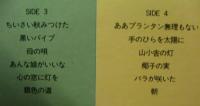 SIDE 3
ちいさい秋みつけた
黒いパイプ
母の唄
あんな娘がいいな
心の窓に灯を
銀色の道
SIDE 4
ああプランタン無理もない
手のひらを太陽に
山小舎の灯
椰子の実
バラが咲いた
朝